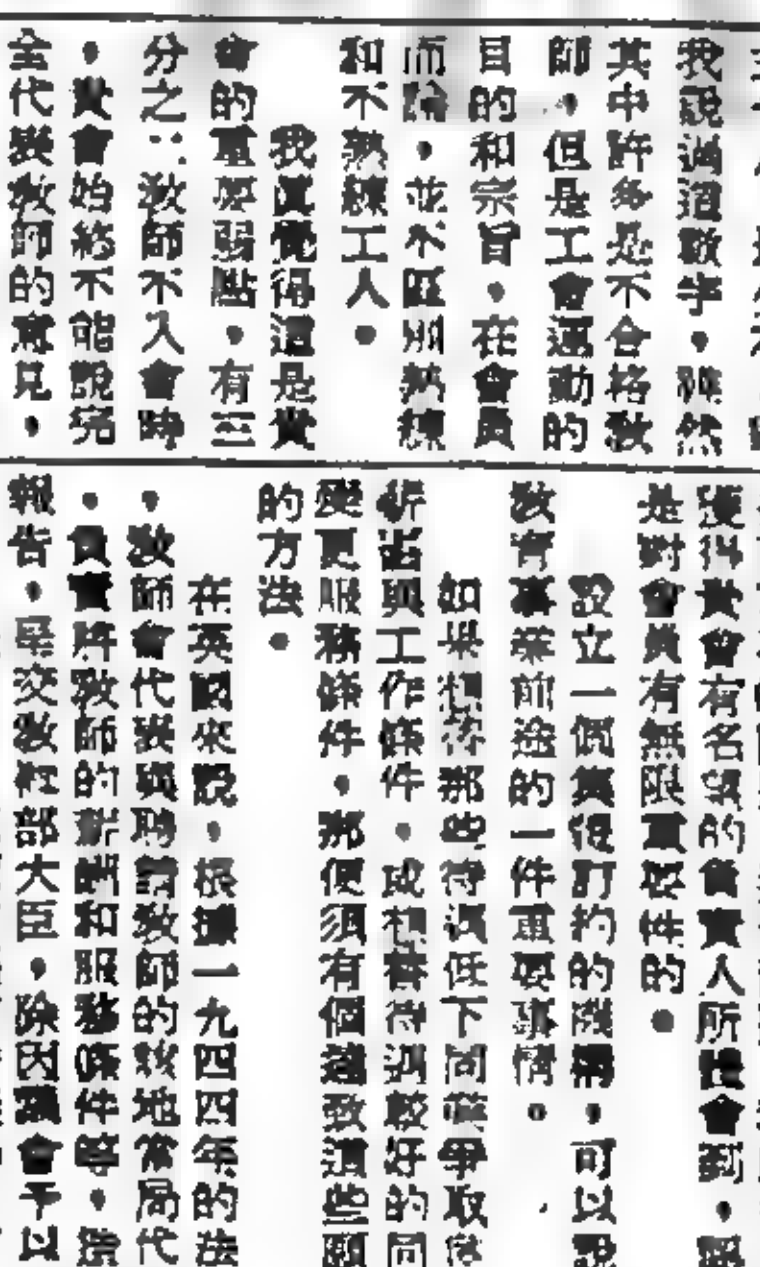 我說過這數字，雖然
其中許多是不合格敎
師，但是工會運動的
目的和宗旨，在會員
而論，並不區別熟練
和不熟練工人。
我眞覺得這是貴
會的重要弱點，有三
分之二敎師不入會時
，貴會始終不能說完
全代表敎師的意見，
獲得貴會有名望的負責人所體會到，
是對會員有無限重要性的。
設立一個具後訂約的機構，可以說
敎育事業前途的一件重要事情。
如果那些待遇低下同業爭取
薪給與工作條件，或待遇較好的同
變更服務條件，那便須有個達致這些願
的方法。
在英國來說，根據一九四四年的法
，敎師會代表與聘請敎師的該地當局代
，負責將敎師的薪酬和服務條件等，
報告，呈交敎部大臣，除因會予以